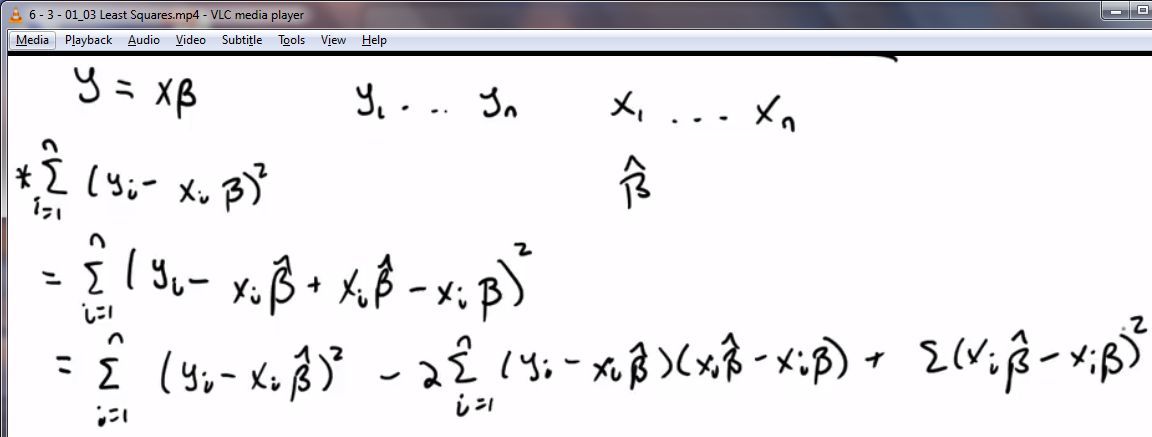 6 - 3 - 01_03 Least Squares.mp4 - VLC media player
Media Playback Audio Video Subtitle Tools View Help
y = xβ y₁ . ... yₙ x₁ ... xₙ
* ∑ᵢ₌₁ⁿ (yᵢ - xᵢ β)² β̂
= ∑ᵢ₌₁ⁿ (yᵢ - xᵢ β̂ + xᵢ β̂ - xᵢ β)²
= ∑ᵢ₌₁ⁿ (yᵢ - xᵢ β̂)² - 2 ∑ᵢ₌₁ⁿ (yᵢ - xᵢ β̂)(xᵢ β̂ - xᵢ β) + ∑(xᵢ β̂ - xᵢ β)²